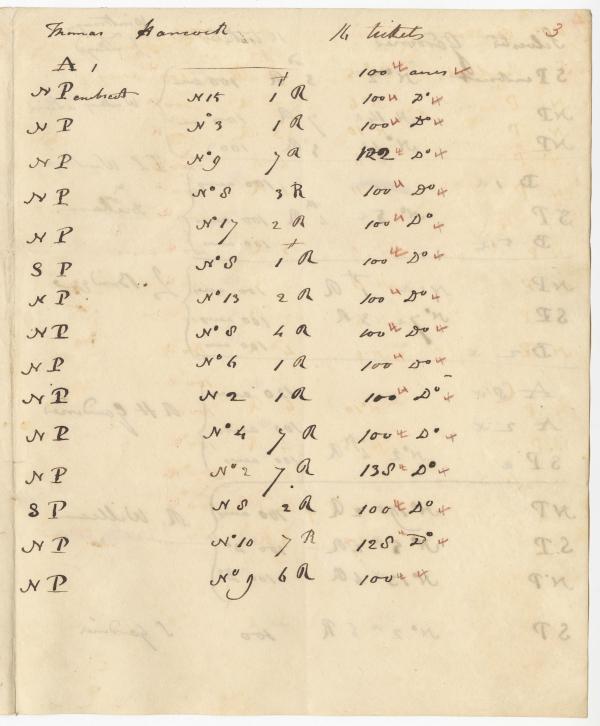 Thomas Hancock 16 tickets 3
A 1 100 acres
N Penobscot N 15 1 R 100 Do
N P No 3 1 R 100 Do
N P No 9 7 R 122 Do
N P No 8 3 R 100 Do
N P No 17 2 R 100 Do
S P No 8 1 R 100 Do
N P No 13 2 R 100 Do
N P No 8 4 R 100 Do
N P No 6 1 R 100 Do
N P N 2 1 R 100 Do
N P No 4 7 R 100 Do
N P No 2 7 R 138 Do
S P N 8 2 R 100 Do
N P No 10 7 R 128 Do
N P No 9 6 R 100